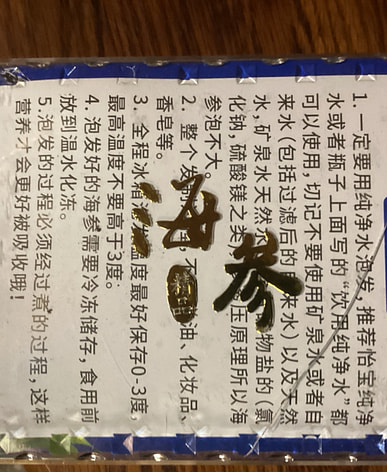 1. 一定要用纯净水泡发，推荐怡宝纯净
水或者瓶子上面写的“饮用纯净水”都
可以使用，切记不要使用矿泉水或者自
来水（包括过滤后的自来水）以及天然
水，矿泉水天然水 物盐的（氯
化钠，硫酸镁之类 压原理所以海
参泡不大。
2. 整个发 不 油、化妆品、
香皂等。
3. 全程冰箱 温度最好保存0-3度，
最高温度不要高于3度。
4. 泡发好的海参需要冷冻储存，食用前
放到温水化冻。
5. 泡发的过程必须经过煮的过程，这样
营养才会更好被吸收哦！
海参